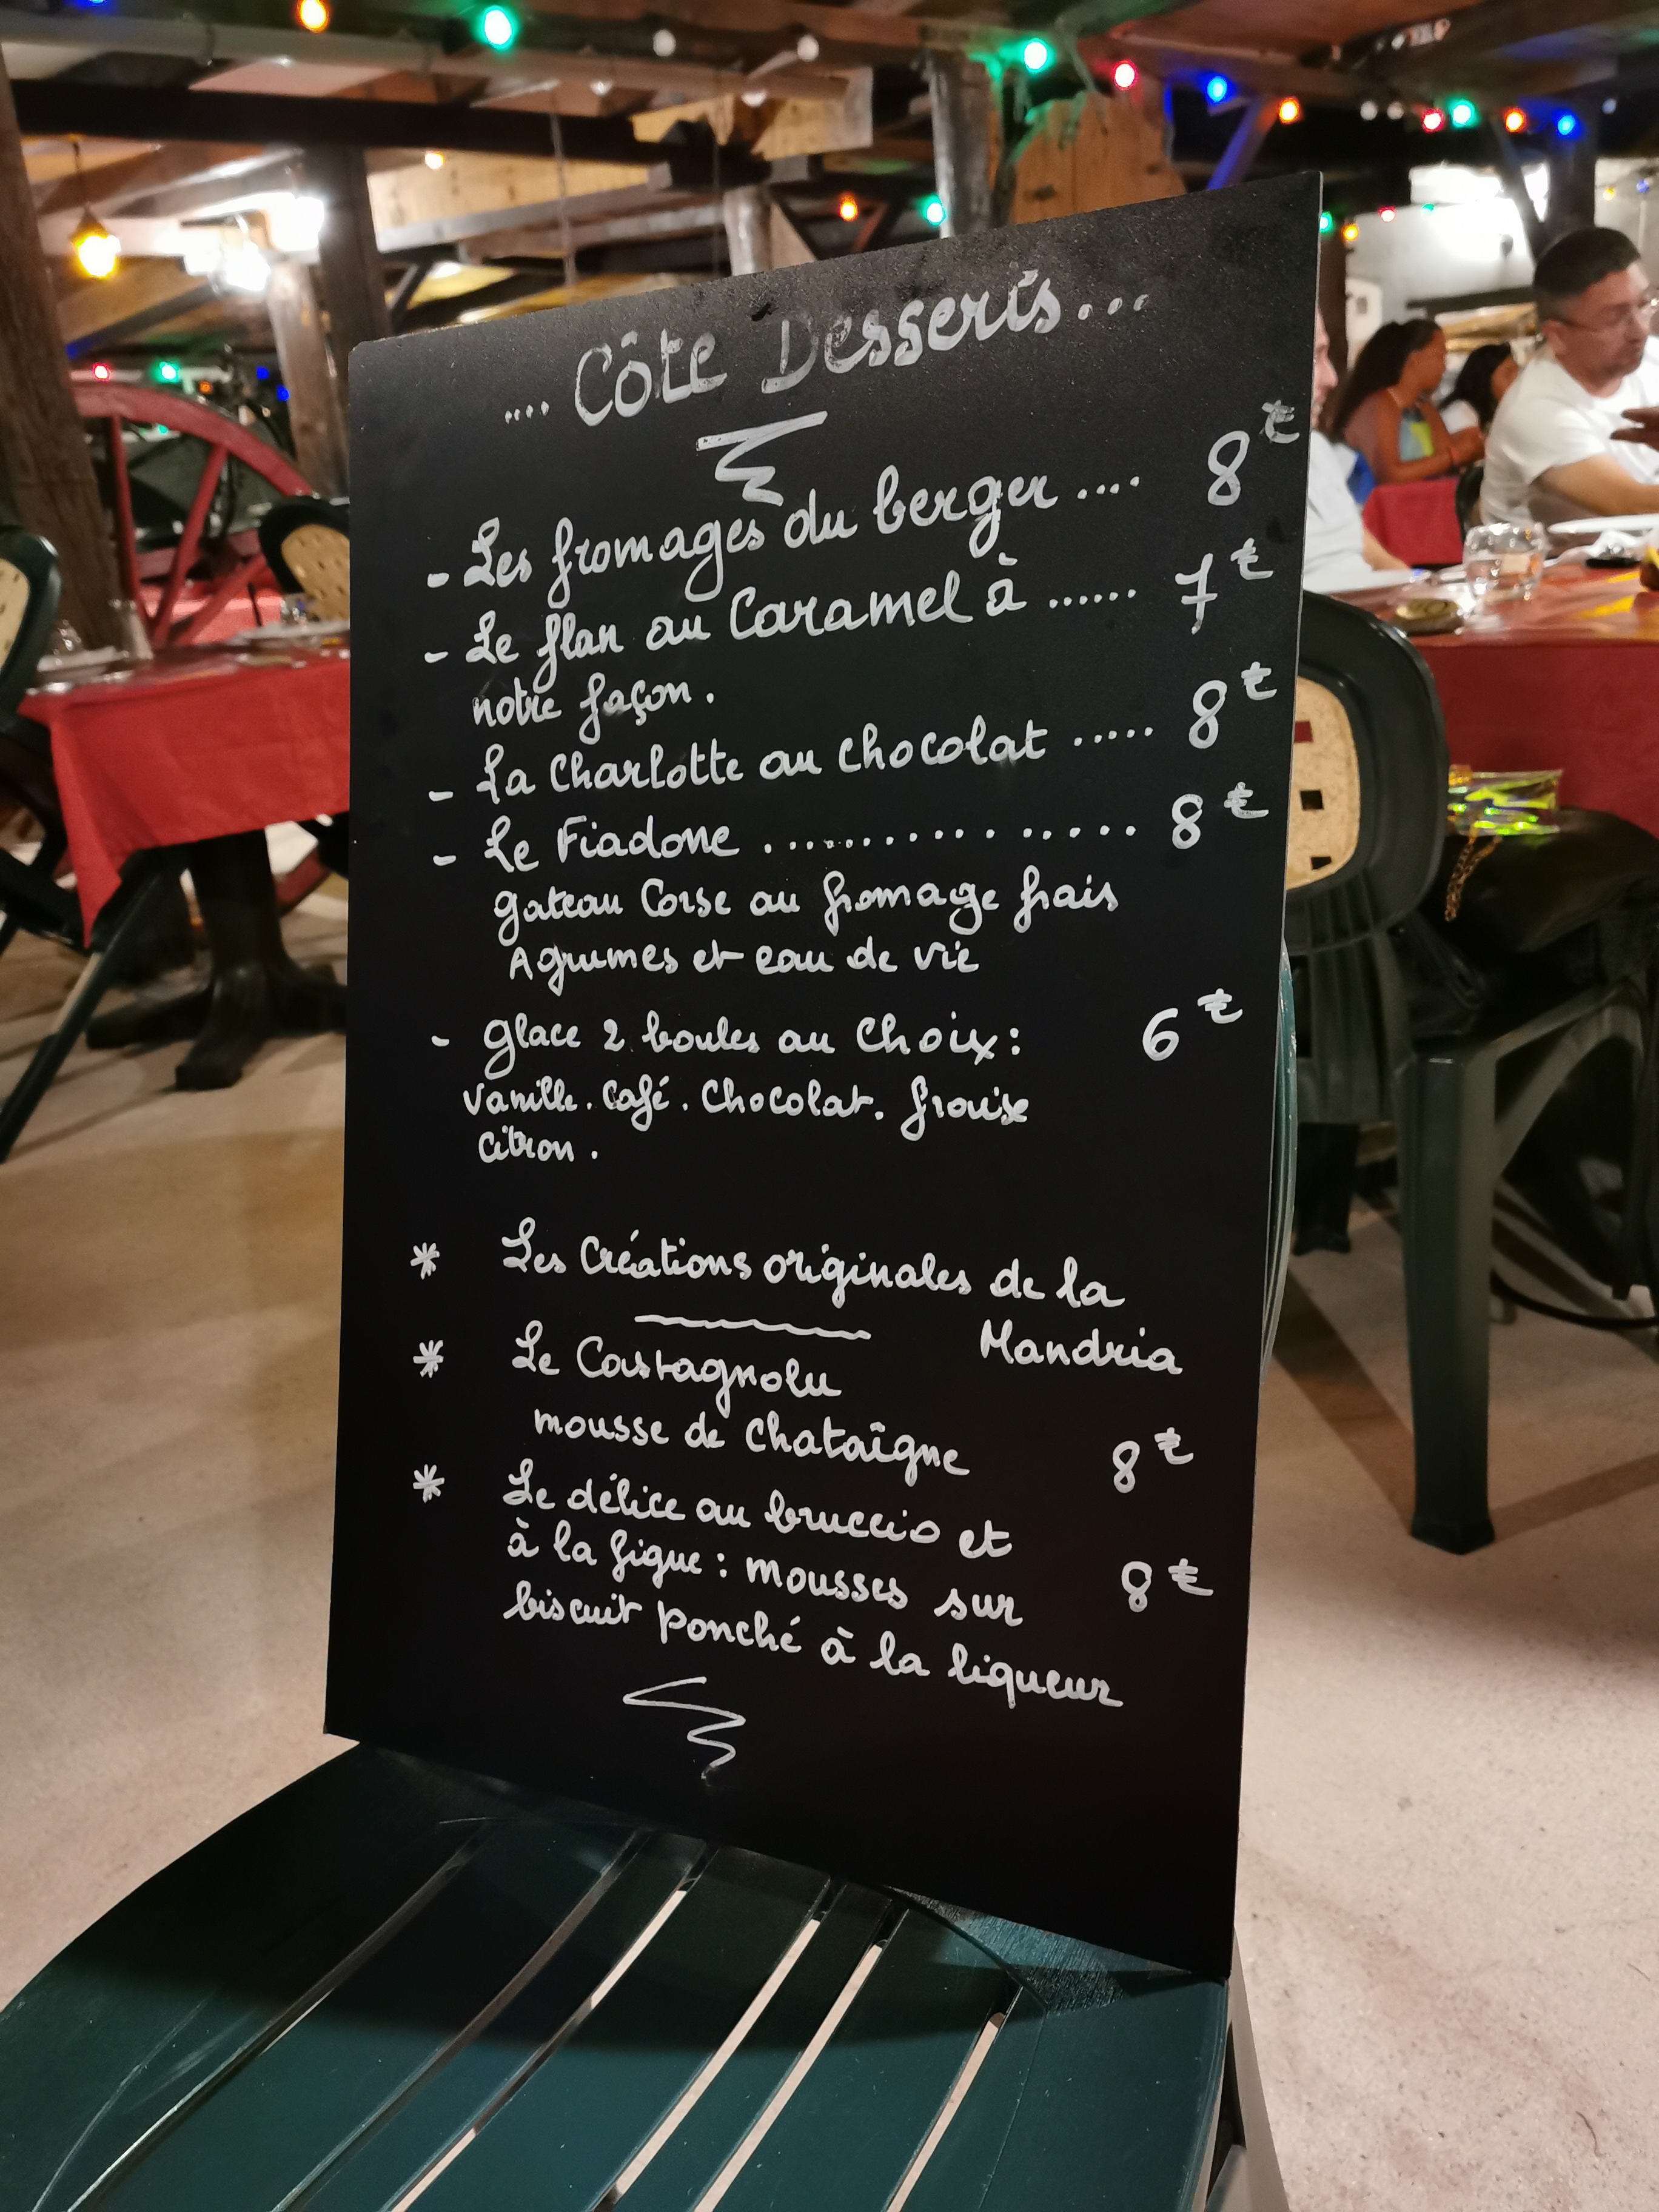 .... Côté Desserts...
- Les fromages du berger .... 8€
- Le flan au Caramel à ...... 7€
notre façon.
- La Charlotte au chocolat ..... 8€
- Le Fiadone ................. 8€
gateau Corse au fromage frais
Agrumes et eau de vie
- glace 2 boules au Choix: 6€
Vanille. Café. Chocolat. fraise
Citron.
* Les Créations originales de la
Mandria
* Le Castagnolu
mousse de Chataîgne 8€
* Le délice au bruccio et
à la figue : mousses sur 8€
biscuit ponché à la liqueur